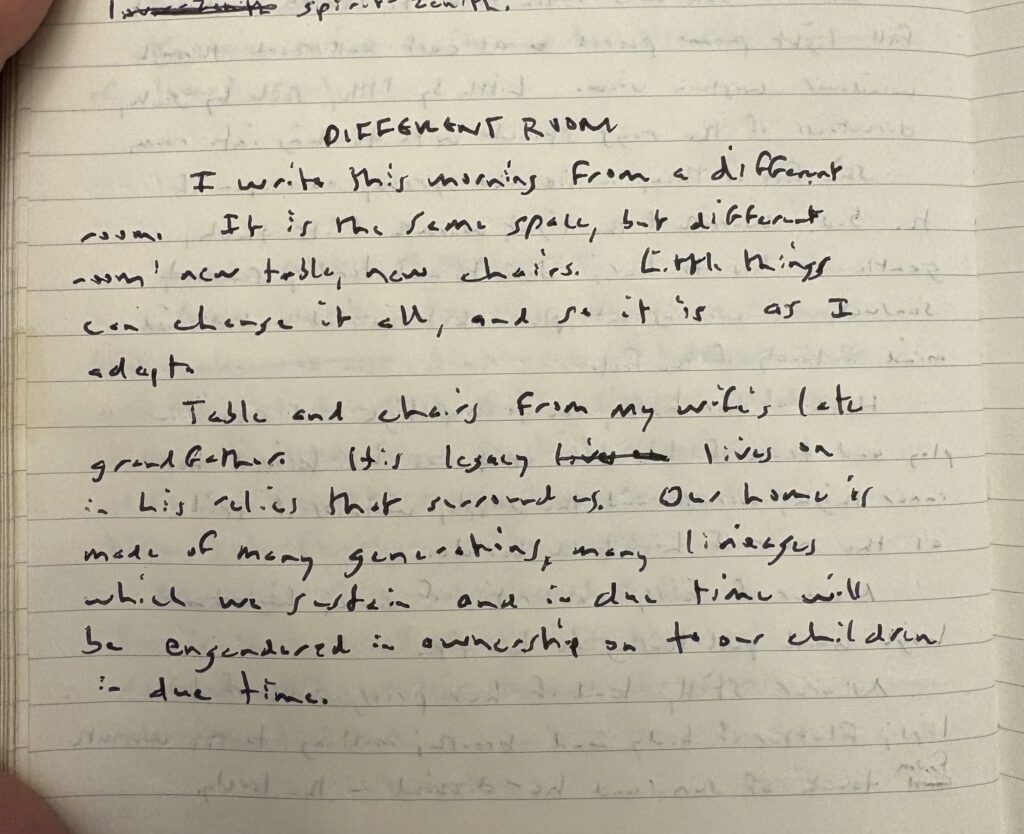 spirit-zenith.
DIFFERENT ROOM
I write this morning from a different
room. It is the same space, but different
room; new table, new chairs. Little things
can change it all, and so it is as I
adapt.
Table and chairs from my wife's late
grandfather. His legacy lives on
in his relics that surround us. Our home is
made of many generations, many lineages
which we sustain and in due time will
be engendered in ownership on to our children
in due time.